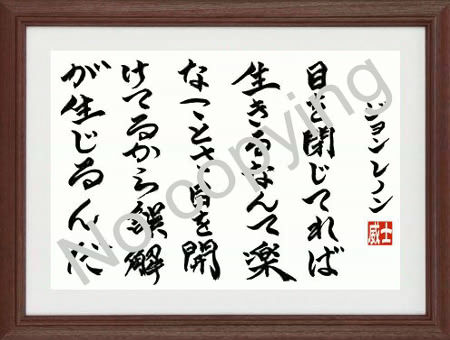 ジョンレノン
目を閉じてれば
生きるなんて楽
なことさ目を開
けてるから誤解
が生じるんだ
威士
No copying